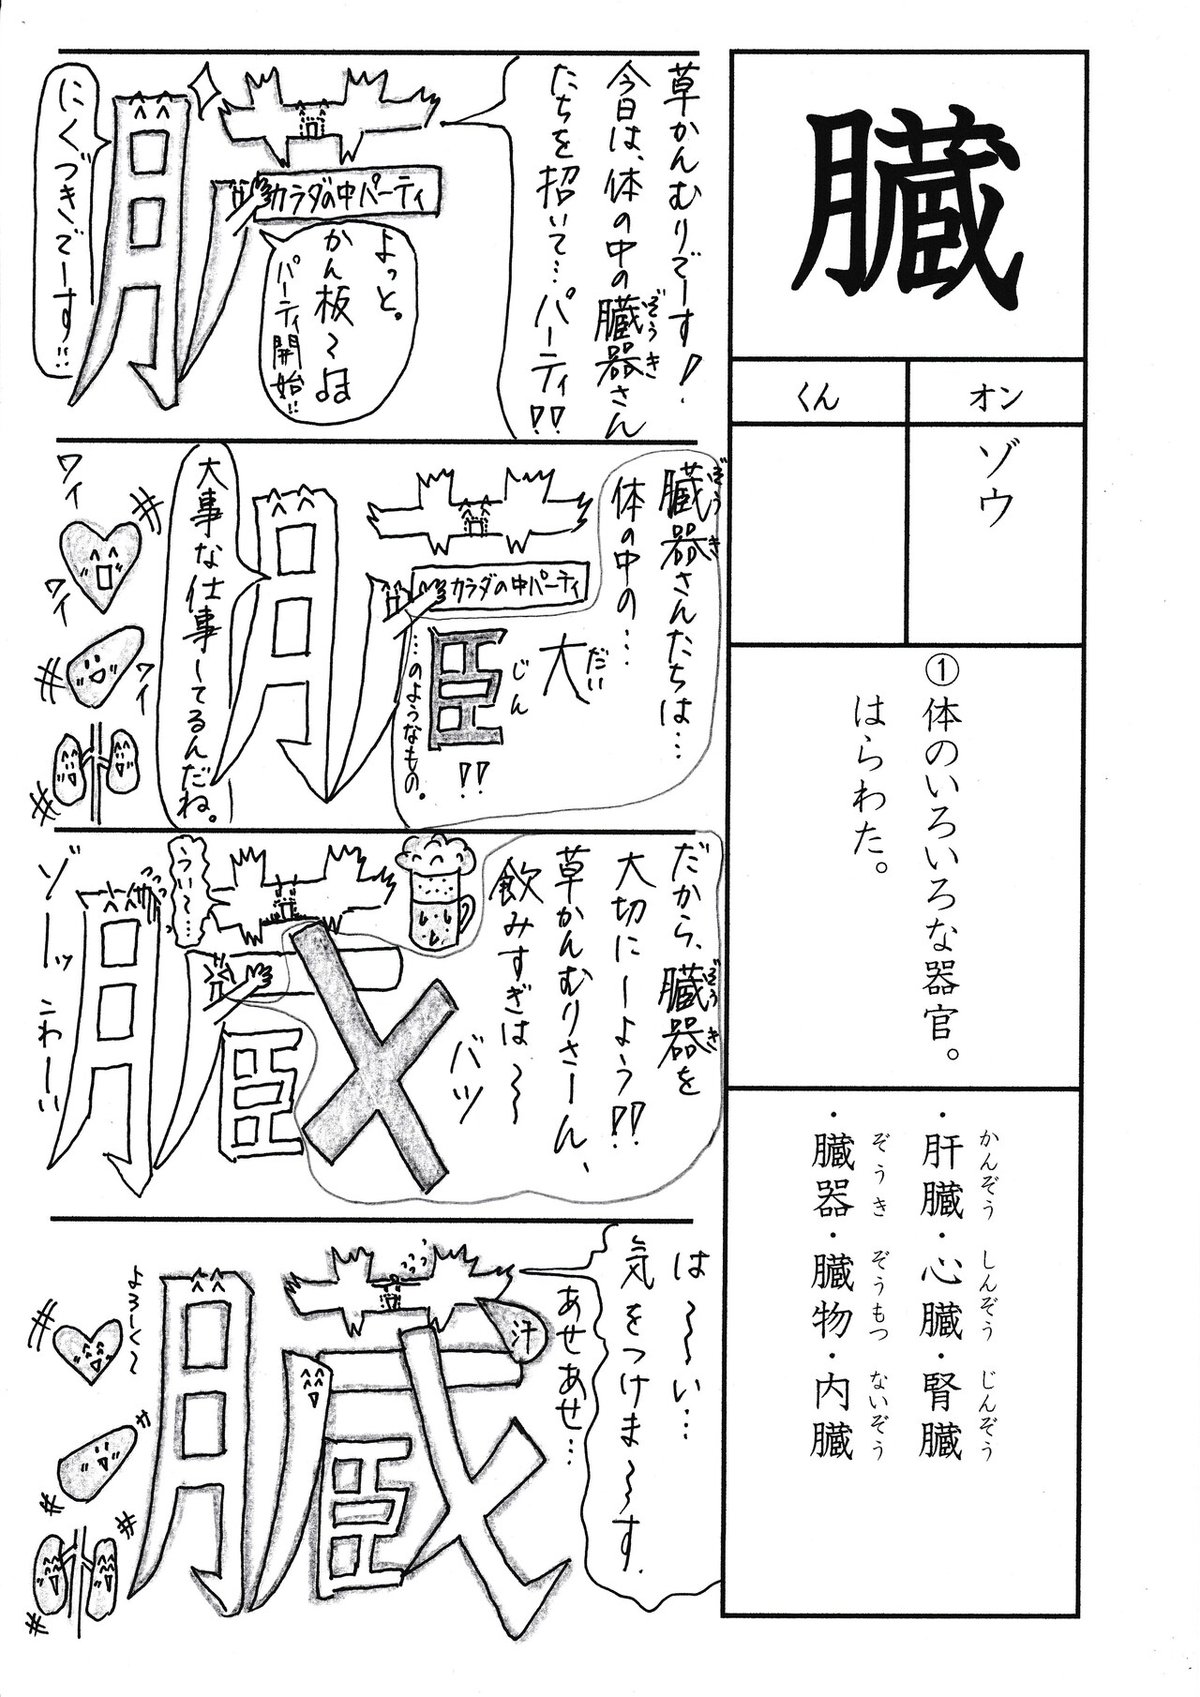 臓
オン
くん
ゾウ
①体のいろいろな器官。
はらわた。
・肝臓・心臓・腎臓
かんぞう しんぞう じんぞう
・臓器・臓物・内臓
ぞうき ぞうもつ ないぞう
草かんむりでーす!
今日は、体の中の臓器さん
ぞうき
たちを招いて…パーティ!!
カラダの中パーティ
よっと。
かん板〜
パーティ開始!!
にくづきでーす!!
臓器さんたちは…
ぞうき
体の中の…
カラダの中パーティ
大臣!!
だいじん
…のようなもの。
大事な仕事してるんだね。
ワイ
ワイ
ワイ
だから、臓器を
ぞうき
大切にーよう!!
草かんむりさーん、
飲みすぎは〜
バツ
ういーて…
ゾーッこわーい
は〜い…
気をつけま〜す。
あせあせ…
汁
よろーく〜